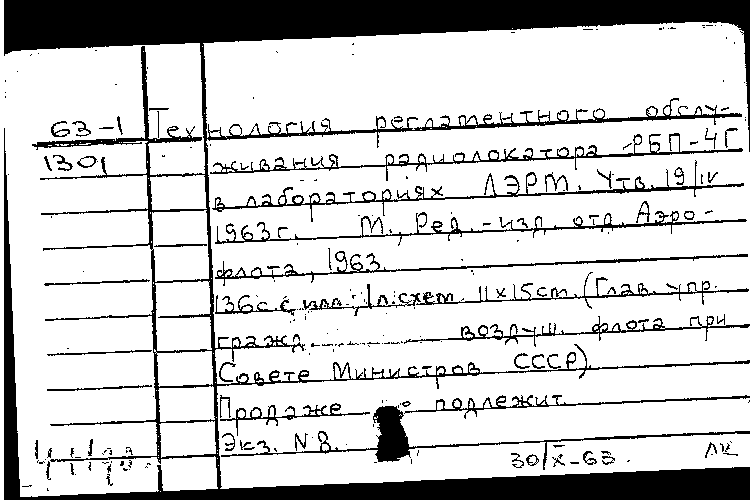 63-1 Технология регламентного обслу-
1301 живания радиолокатора РБП-4Г
в лабораториях ЛЭРМ. Утв. 19/IV
1963г. М., Ред.-изд. отд. Аэро-
флота, 1963.
136с. с илл.; 1 л. схем. 11х15см. (Глав. упр.
гражд. воздуш. флота при
Совете Министров СССР).
Продаже не подлежит.
Экз. N 8.
30/X-63.